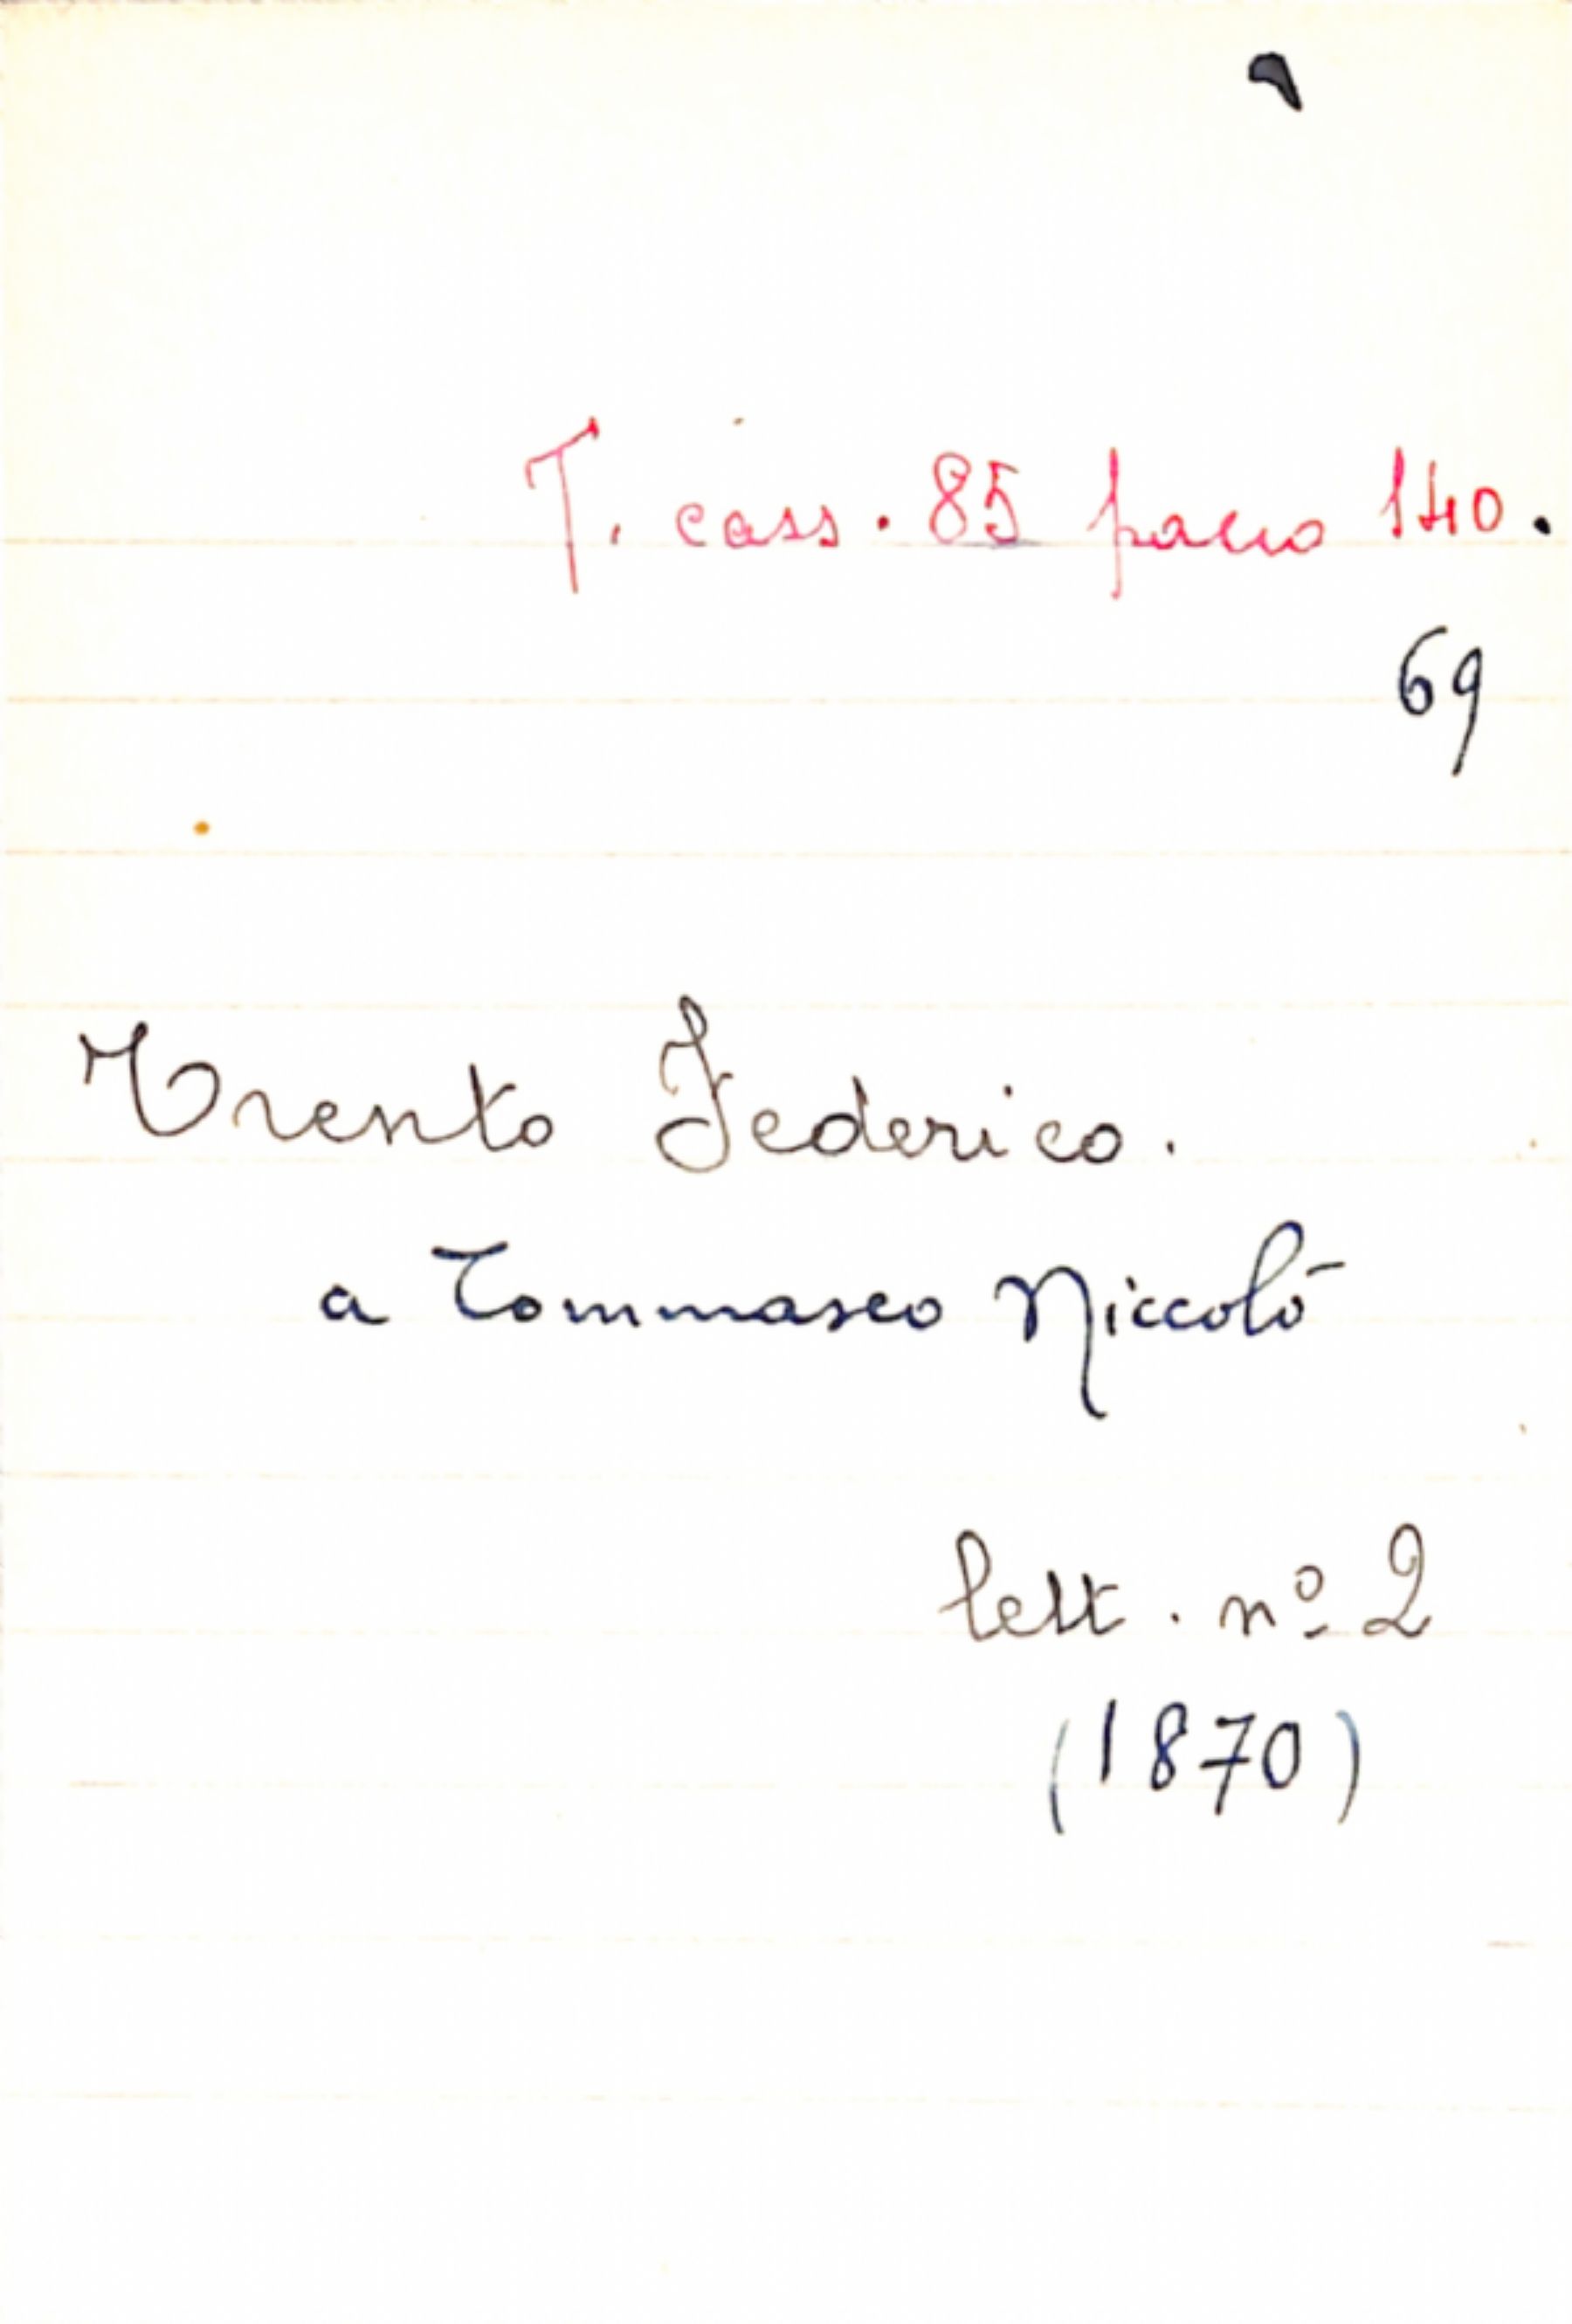 T. cass. 85 pacco 140.
69
Trento Federico.
a Tommaseo Niccolò
lett. nº 2
(1870)